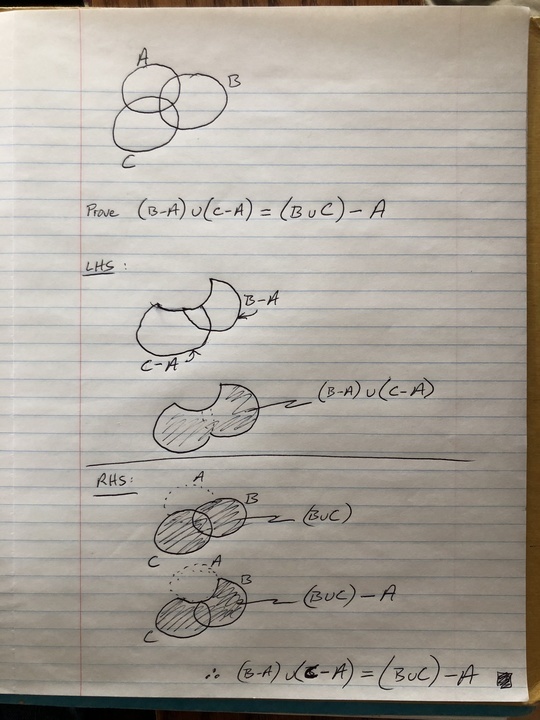 A
B
C
Prove (B-A) ∪ (C-A) = (B∪C) - A
LHS:
B-A
C-A
(B-A) ∪ (C-A)
RHS:
A
B
(B∪C)
C
A
B
(B∪C) - A
C
∴ (B-A) ∪ (C-A) = (B∪C) - A